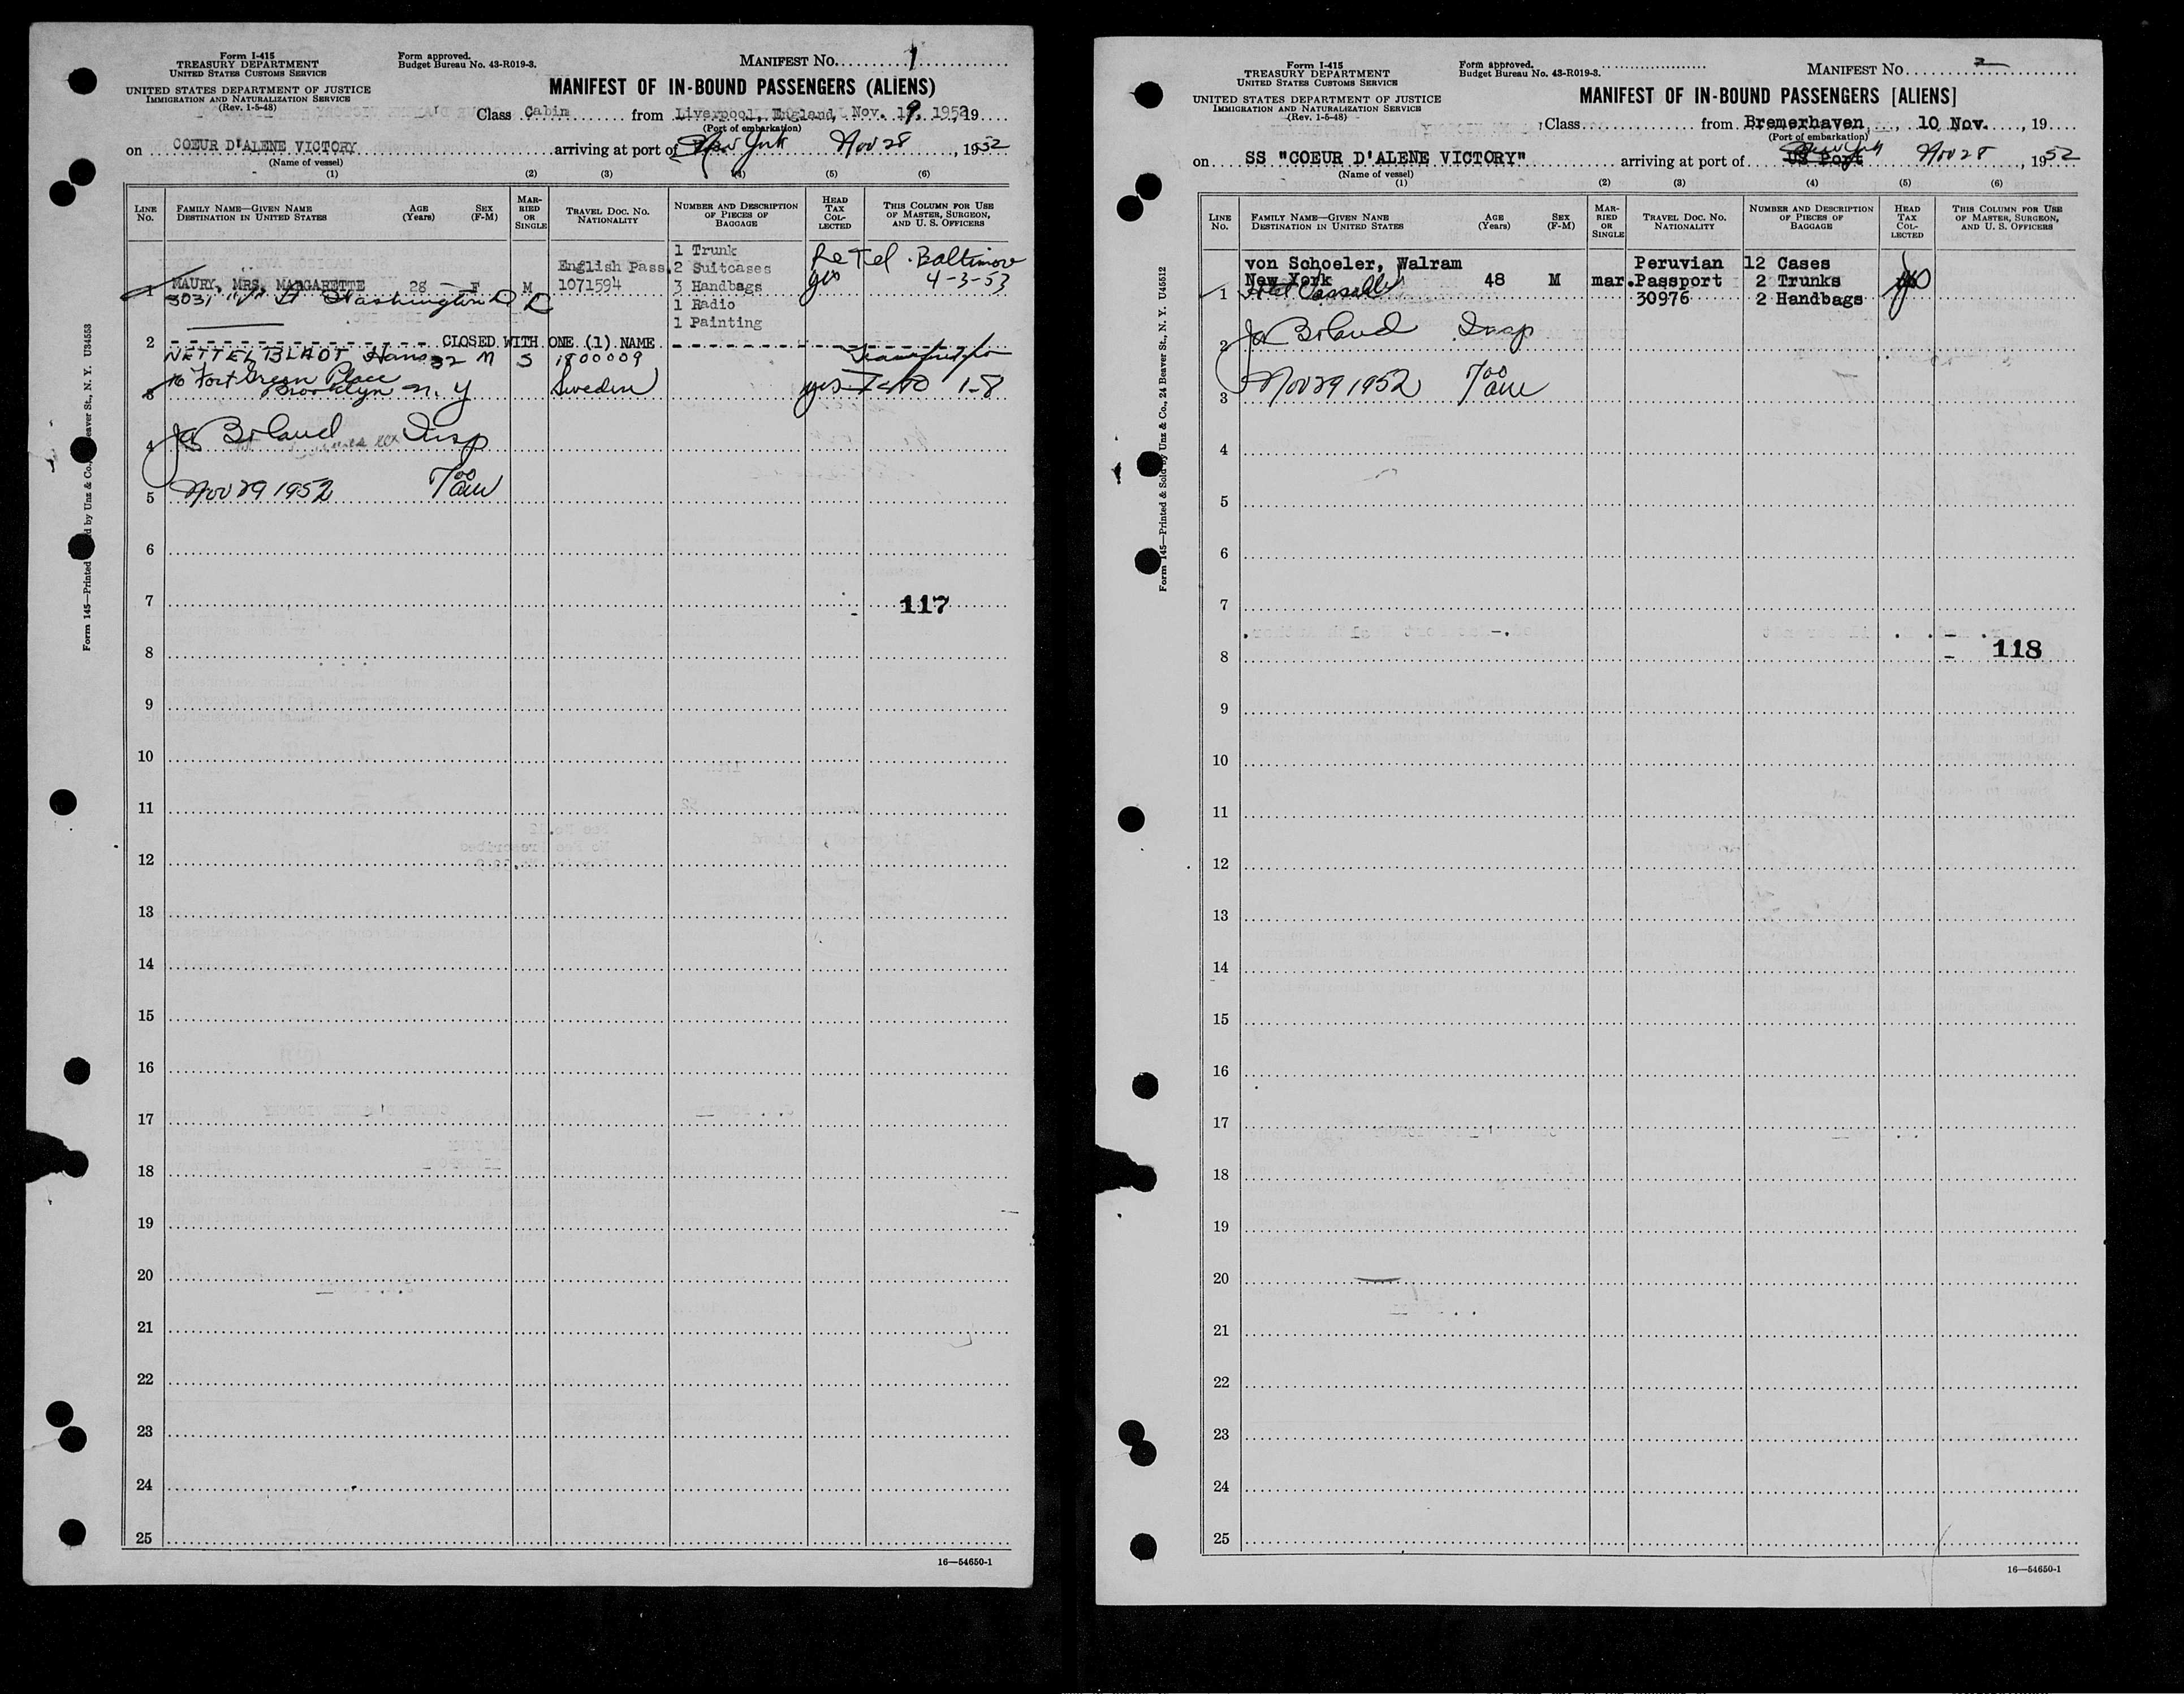 Form I-415
TREASURY DEPARTMENT
UNITED STATES CUSTOMS SERVICE
UNITED STATES DEPARTMENT OF JUSTICE
IMMIGRATION AND NATURALIZATION SERVICE
(Rev. 1-5-48)
Form approved.
Budget Bureau No. 43-R019-3.
MANIFEST No. 1
MANIFEST OF IN-BOUND PASSENGERS (ALIENS)
Class Cabin from Liverpool, England, Nov. 19, 1952, 19
(Port of embarkation)
on COEUR D'ALENE VICTORY arriving at port of New York Nov 28, 1952
(Name of vessel)
(1) (2) (3) (4) (5) (6)
LINE No.
FAMILY NAME—GIVEN NAME
DESTINATION IN UNITED STATES
AGE (Years)
SEX (F-M)
MARRIED OR SINGLE
TRAVEL DOC. NO.
NATIONALITY
NUMBER AND DESCRIPTION OF PIECES OF BAGGAGE
HEAD TAX COLLECTED
THIS COLUMN FOR USE OF MASTER, SURGEON, AND U. S. OFFICERS
1 MAURY, MRS. MARGARETTE 28 F M
3031 St Washington D C
English Pass.
1071594
1 Trunk
2 Suitcases
3 Handbags
1 Radio
1 Painting
Re Tel. Baltimore
yes 4-3-53
2 CLOSED WITH ONE (1) NAME
NETTELBLADT Hans 32 M S 1800009
3 16 Fort Green Place
Brooklyn N. Y
Sweden
yes 1-8
4 Boland Insp
5 Nov 29 1952 7 00 am
6
7 117
8
9
10
11
12
13
14
15
16
17
18
19
20
21
22
23
24
25
16—54650-1
U34553
Form I-415
TREASURY DEPARTMENT
UNITED STATES CUSTOMS SERVICE
UNITED STATES DEPARTMENT OF JUSTICE
IMMIGRATION AND NATURALIZATION SERVICE
(Rev. 1-5-48)
Form approved.
Budget Bureau No. 43-R019-3.
MANIFEST No. 2
MANIFEST OF IN-BOUND PASSENGERS [ALIENS]
Class from Bremerhaven, 10 Nov., 19
(Port of embarkation)
on SS "COEUR D'ALENE VICTORY" arriving at port of US Port New York Nov 28, 1952
(Name of vessel)
(1) (2) (3) (4) (5) (6)
LINE No.
FAMILY NAME—GIVEN NANE
DESTINATION IN UNITED STATES
AGE (Years)
SEX (F-M)
MARRIED OR SINGLE
TRAVEL DOC. NO.
NATIONALITY
NUMBER AND DESCRIPTION OF PIECES OF BAGGAGE
HEAD TAX COLLECTED
THIS COLUMN FOR USE OF MASTER, SURGEON, AND U. S. OFFICERS
von Schoeler, Walram
New York 48 M mar.
1
Peruvian
Passport
30976
12 Cases
2 Trunks
2 Handbags
2 Boland Insp
3 Nov 29 1952 7 00 am
4
5
6
7
8 118
9
10
11
12
13
14
15
16
17
18
19
20
21
22
23
24
25
16—54650-1
Form 145—Printed & Sold by Unz & Co., 24 Beaver St., N. Y. U45512